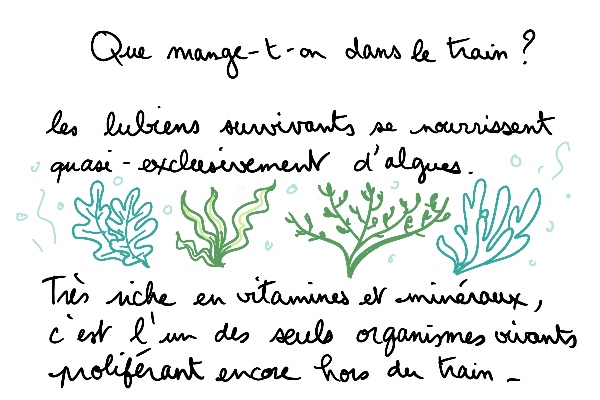 Que mange-t-on dans le train ?
les lubiens survivants se nourrissent
quasi-exclusivement d'algues.
Très riche en vitamines et minéraux,
c'est l'un des seuls organismes vivants
proliférant encore hors du train -